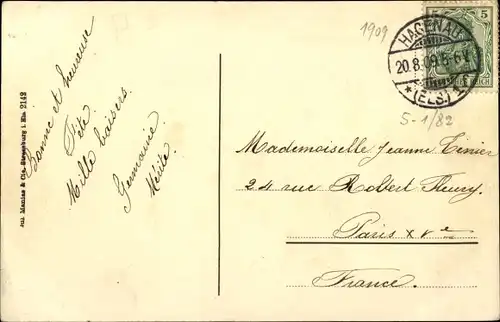 Bonne et heureuse
Fête
Mille baisers.
Germaine.
Jul. Manias & Cie. Strassburg i. Els. 2142
1909
HAGENAU
20.8.09. 5-6 N
* (ELS.) 1 f
5
5-1/82
Mademoiselle Jeanne
24 rue Robert Fleury.
Paris XVe
France.